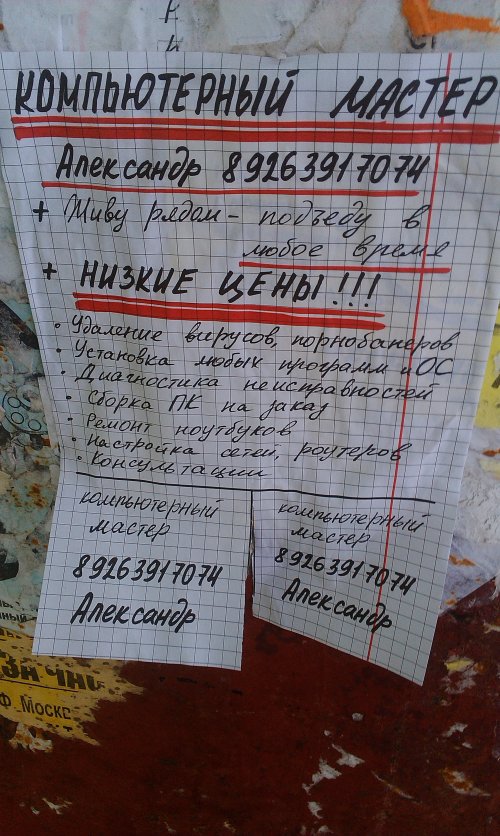 КОМПЬЮТЕРНЫЙ МАСТЕР
Александр 89263917074
+ Живу рядом - подъеду в
любое время
+ НИЗКИЕ ЦЕНЫ!!!
• Удаление вирусов, порнобанеров
• Установка любых программ и ОС
• Диагностика неисправностей
• Сборка ПК на заказ
• Ремонт ноутбуков
• Настройка сетей, роутеров
• Консультации
компьютерный
мастер
89263917074
Александр
компьютерный
мастер
89263917074
Александр
Ф. Моске